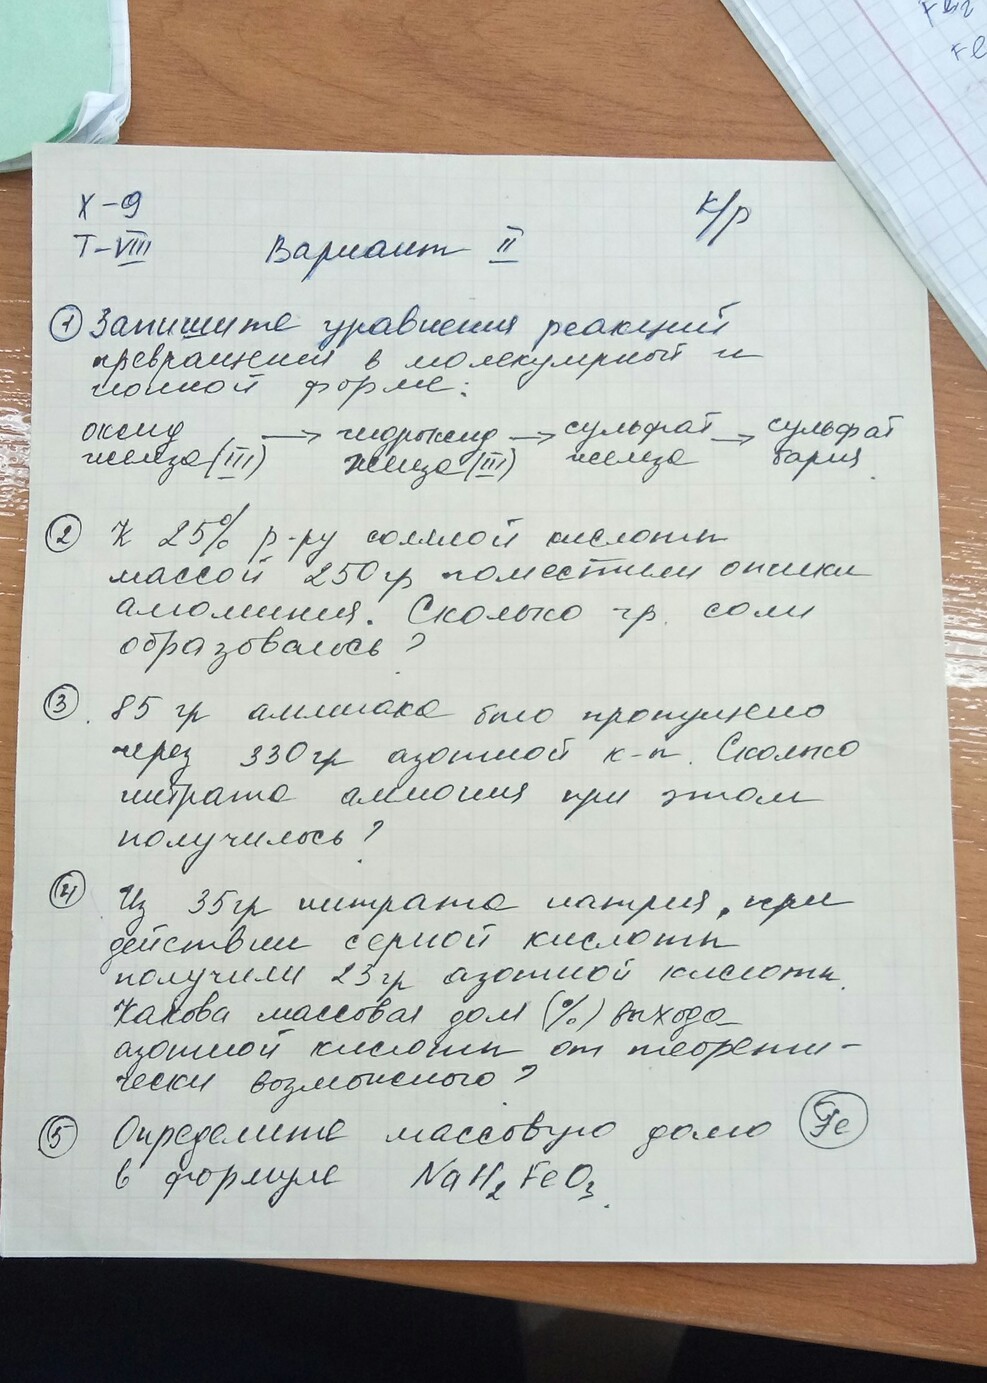 Х-9
Т-VIII
к/р
Вариант II
① Запишите уравнения реакций
превращений в молекулярной и
ионной форме:
оксид → гидроксид → сульфат → сульфат
железа(III) железа(III) железа бария.
② К 25% р-ру соляной кислоты
массой 250гр поместили опилки
алюминия. Сколько гр. соли
образовалось?
③. 85 гр аммиака было пропущено
через 330гр азотной к-ты. Сколько
нитрата аммония при этом
получилось?
④ Из 35гр нитрата натрия, при
действии серной кислоты
получили 23гр азотной кислоты.
Какова массовая доля (%) выхода
азотной кислоты от теорети-
чески возможного?
⑤ Определите массовую долю Fe
в формуле NaH₂FeO₃.